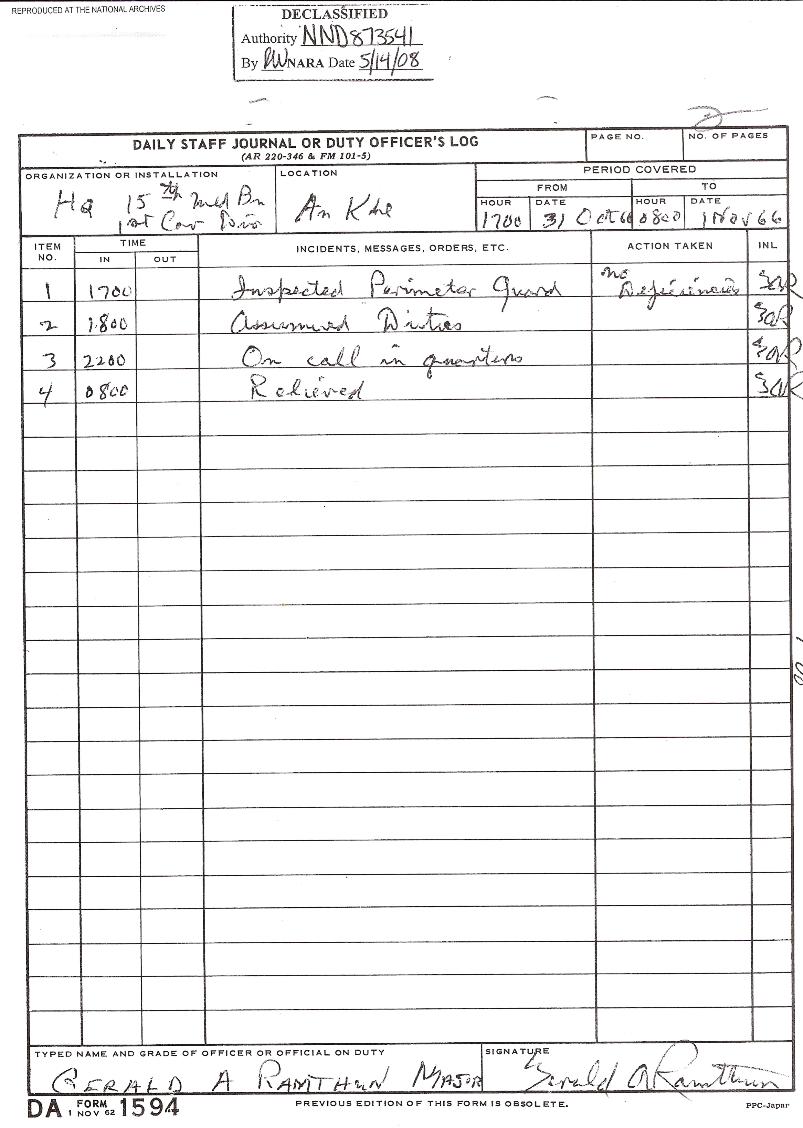 REPRODUCED AT THE NATIONAL ARCHIVES
DECLASSIFIED
Authority NND873541
By RW NARA Date 5/14/08
2
DAILY STAFF JOURNAL OR DUTY OFFICER'S LOG
(AR 220-346 & FM 101-5)
PAGE NO.
NO. OF PAGES
ORGANIZATION OR INSTALLATION
HQ 15th Med Bn
1st Cav Div
LOCATION
An Khe
PERIOD COVERED
FROM
TO
HOUR
DATE
HOUR
DATE
1700
31 Oct 66
0800
1 Nov 66
ITEM NO.
TIME
IN
OUT
INCIDENTS, MESSAGES, ORDERS, ETC.
ACTION TAKEN
INL
1 1700 Inspected Perimeter Guard no Deficiencies GAR
2 1800 Assumed Duties GAR
3 2200 On call in quarters GAR
4 0800 Relieved GAR
TYPED NAME AND GRADE OF OFFICER OR OFFICIAL ON DUTY
GERALD A RAMTHUN MAJOR
SIGNATURE
Gerald A Ramthun
DA FORM 1594
1 NOV 62
PREVIOUS EDITION OF THIS FORM IS OBSOLETE.
PPC-Japan